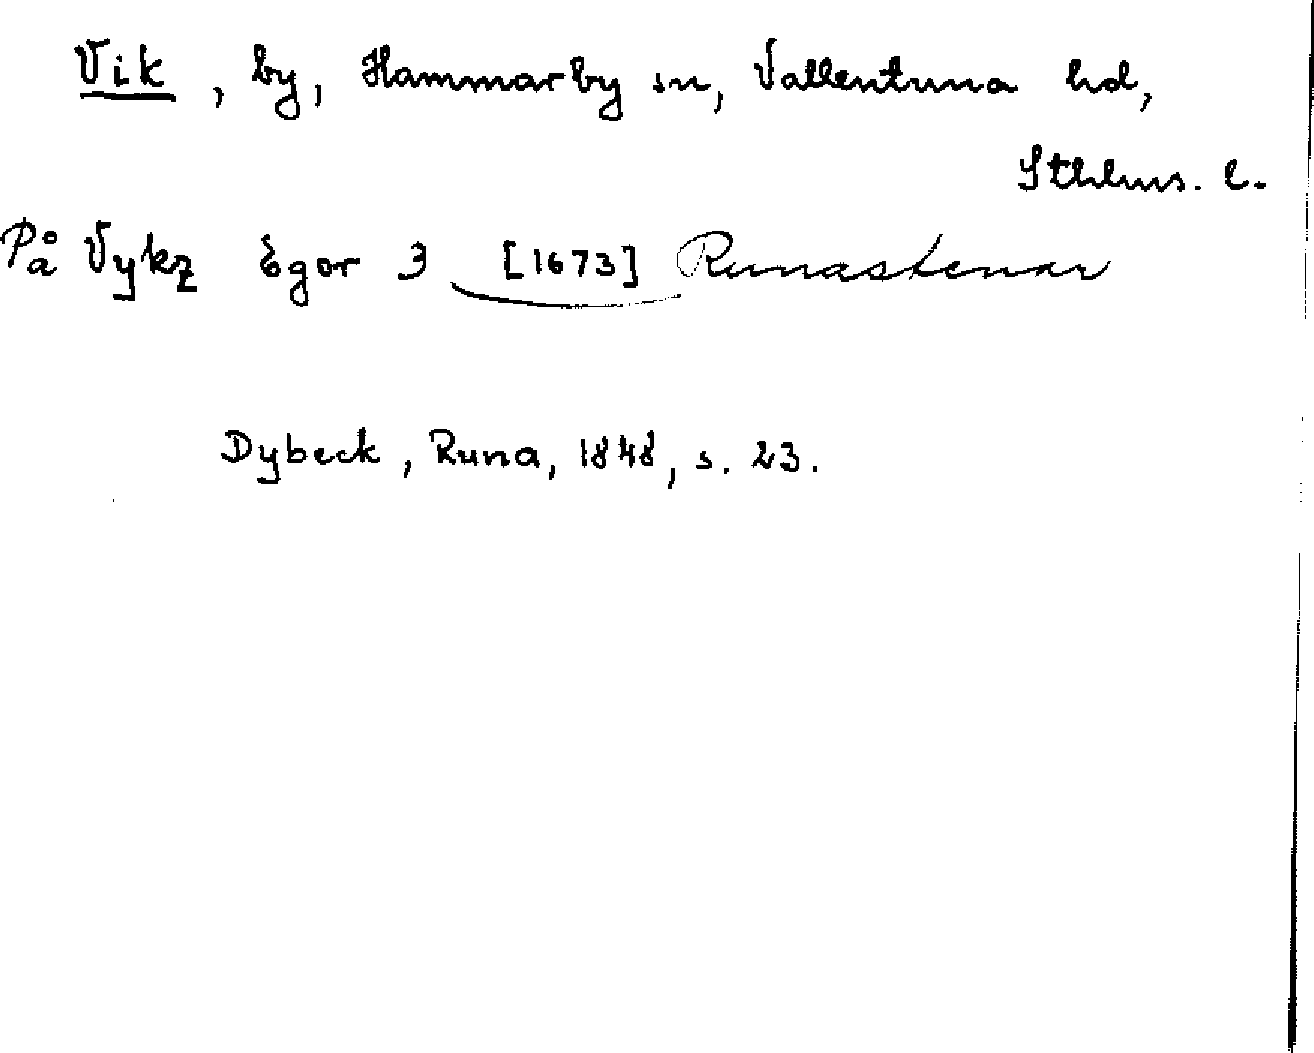 Vik, by, Hammarby sn, Vallentuna hd,
Sthlms. l.
På Vykz Egor 3 [1673] Runastenar
Dybeck, Runa, 1848, s. 23.